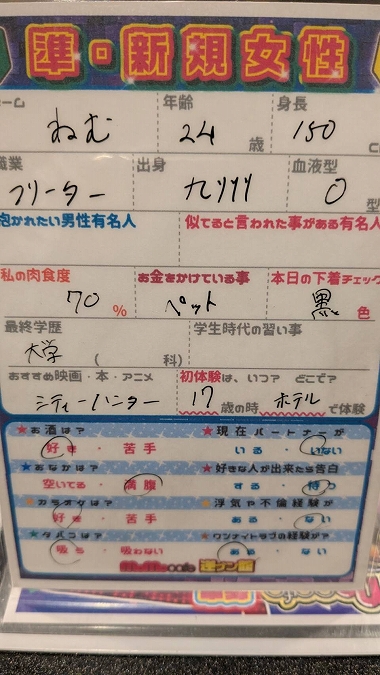 準・新規女性
ーム 年齢 身長
ねむ 24歳 150 c
職業 出身 血液型
フリーター 九州 O型
抱かれたい男性有名人 似てると言われた事がある有名人
私の肉食度 お金をかけている事 本日の下着チェック
70% ペット 黒色
最終学歴 学生時代の習い事
大学 ( 科)
おすすめ映画・本・アニメ 初体験は、いつ？どこで？
シティーハンター 17歳の時 ホテルで体験
★お酒は？ ★現在パートナーが
好き・苦手 いる・いない
★おなかは？ ★好きな人が出来たら告白
空いてる・満腹 する・待つ
★カラオケは？ ★浮気や不倫経験が
好き・苦手 ある・ない
★タバコは？ ★ワンナイトラブの経験が？
吸う・吸わない ある・ない
cafe 逆ナン館